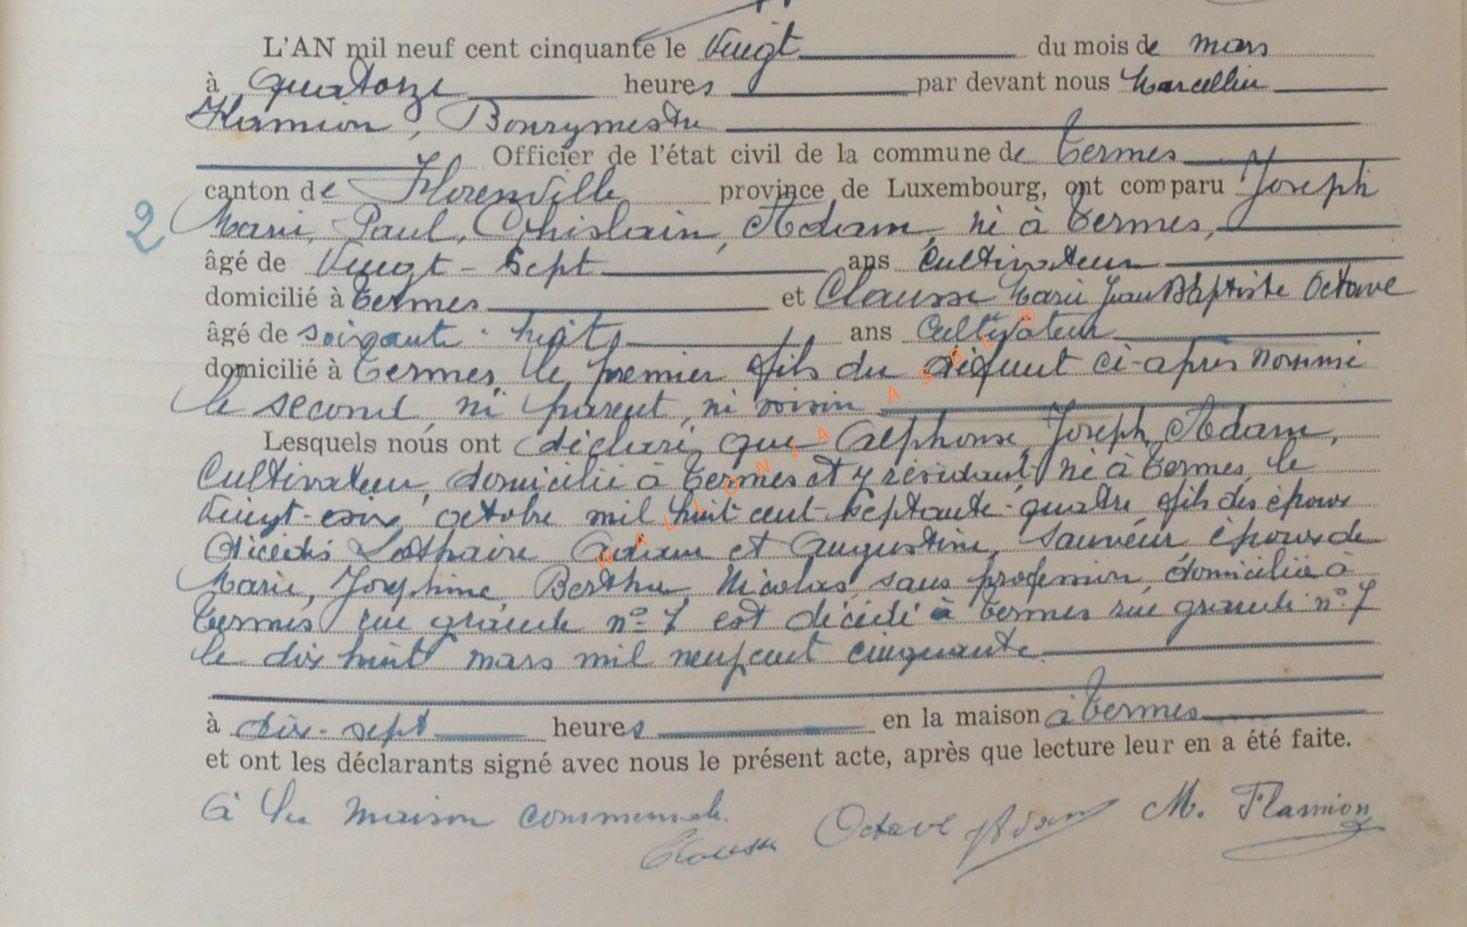 L'AN mil neuf cent cinquante le Vingt du mois de mars
à quatorze heures par devant nous Marcellin
Flamion, Bourgmestre
Officier de l'état civil de la commune de Termes
canton de Florenville province de Luxembourg, ont comparu Joseph
2 Marie, Paul, Ghislain, Adam, né à Termes,
âgé de Vingt-Sept ans Cultivateur
domicilié à Termes et Clausse Marie Jean Baptiste Octave
âgé de soixante-huit ans Cultivateur
domicilié à Termes, le premier fils du défunt ci-après nommé
le second, ni parent, ni voisin
Lesquels nous ont déclaré que Alphonse, Joseph, Adam,
Cultivateur, domicilié à Termes et y résidant, né à Termes, le
Vingt- octobre mil huit cent septante-quatre fils des époux
décédés Lothaire Adam et Augustine, Sauveur époux de
Marie, Joséphine, Berthe, Nicolas, sans profession, domiciliée à
Termes rue grande n° 7 est décédé à Termes rue grande n° 7
le dix huit mars mil neuf cent cinquante
à dix-sept heures en la maison à Termes
et ont les déclarants signé avec nous le présent acte, après que lecture leur en a été faite.
à la maison communale.
Clausse Octave J Adam M. Flamion
WALLONIA ASBL ®